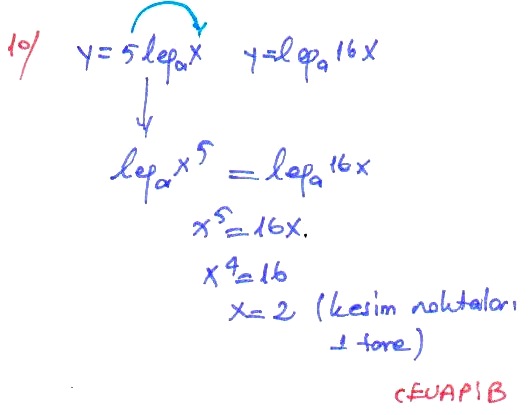 10/ y = 5 log_a x   y = log_a 16x
log_a x^5 = log_a 16x
x^5 = 16x.
x^4 = 16
x = 2 (kesim noktaları
1 tane)
CEVAP: B